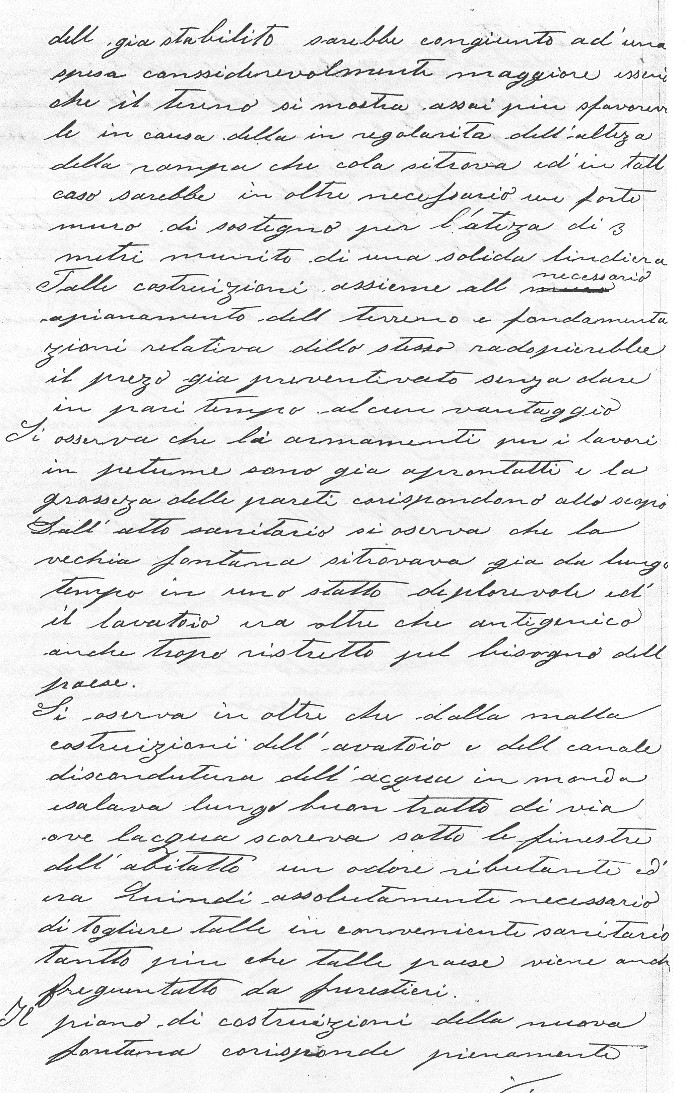 dell gia stabilito sarebbe congiunto ad'una
spesa conssiderevolmente maggiore essen
che il tereno si mostra assai piu sfavorev
le in causa della in regolarita dell'alteza
della rampa che cola sitrova ed'in tall
caso sarebbe in oltre necessario un forte
muro di sostegno per l'ateza di 3
metri munito di una solida lindiera
Talle costruizioni assieme all necessario
apianamento dell terreno e fondamenta
zioni relativa dello stesso radopierebbe
il prezo gia preventivato senza dare
in pari tempo alcun vantaggio
Si osserva che li armamenti per i lavori
in petume sono gia aprontatti e la
grosseza delle pareti corispondono allo scopo
Sall'atto sanitario si oserva che la
vechia fontana sitrovava gia da lungo
tempo in uno statto deplorevole ed'
il lavatoio era oltre che antigenico
anche tropo ristretto pel bisogno dell
paese.
Si oserva in oltre che dalla malla
costruizioni dell'avatoio e dell canale
discondutura dell'acqua in monda
esalava lungo buon tratto di via
ove lacqua scoreva sotto le finestre
dell'abitatto un odore ributante ed'
era Quindi assolutamente necessario
di togliere talle in conveniente sanitario
tantto piu che talle paese viene anch
frequentatto da furestieri.
Il piano di costruizioni della nuova
fontana corisponde pienamente